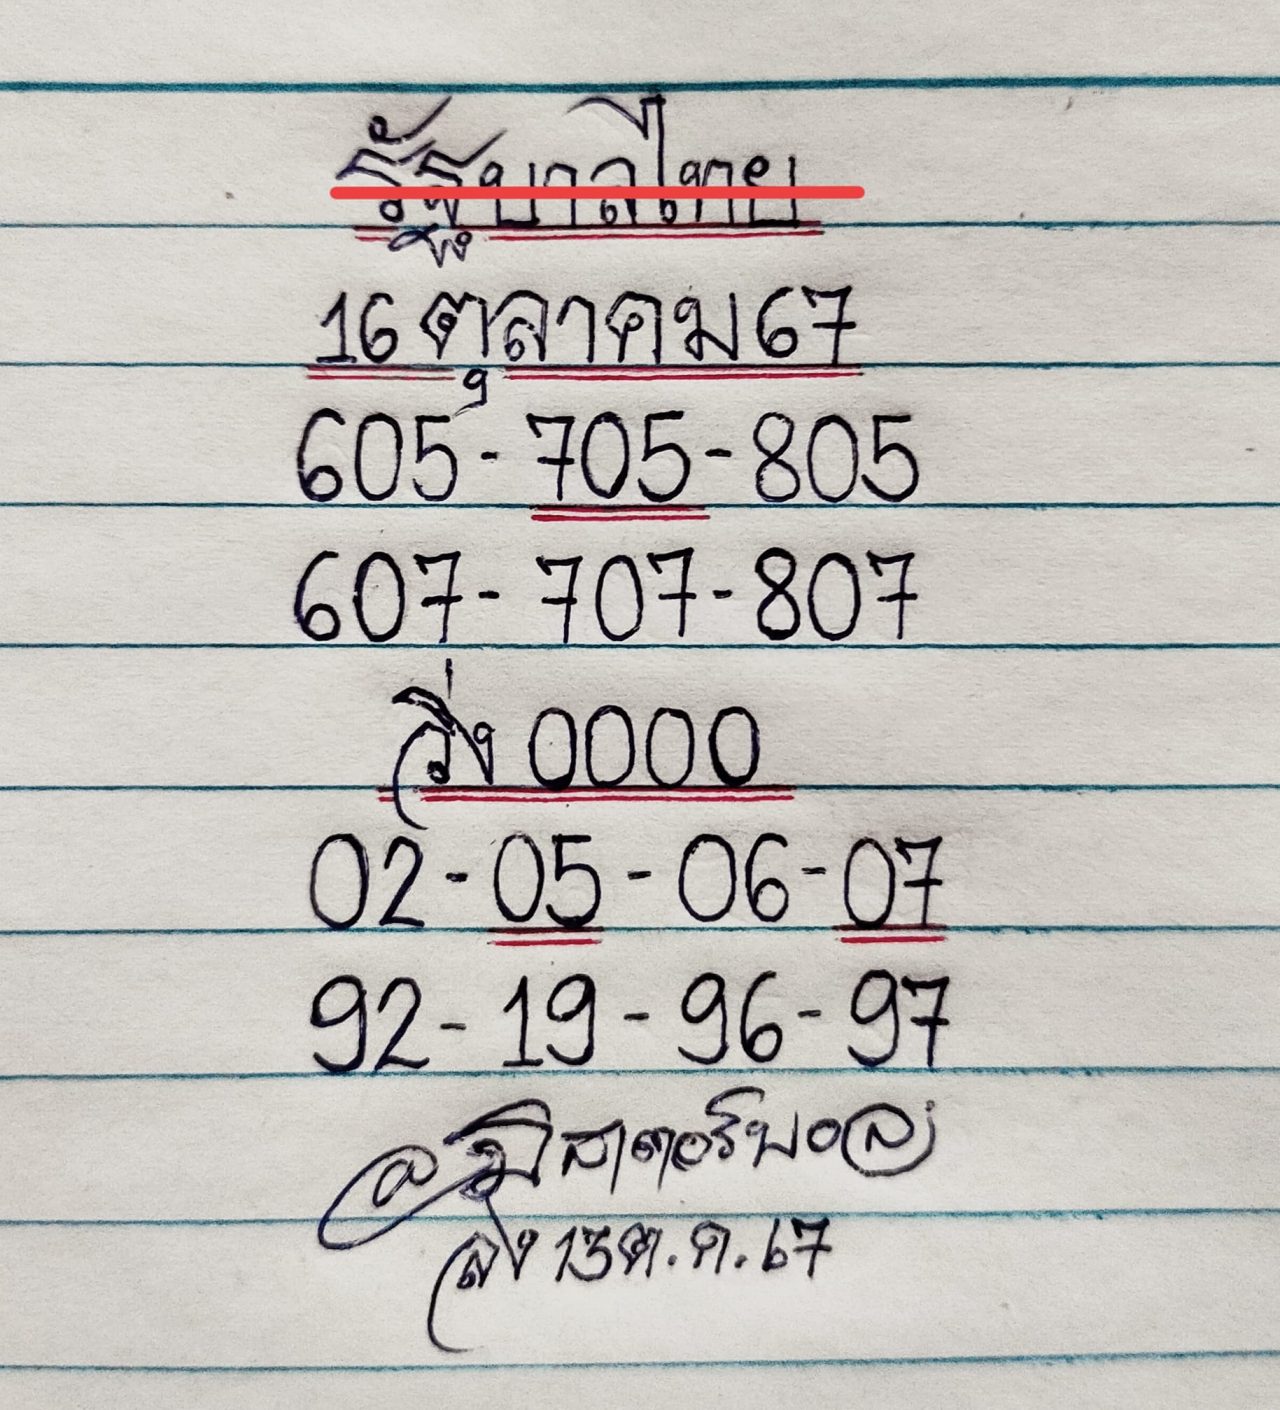 รัฐบาลไทย
16 ตุลาคม 67
605 - 705 - 805
607 - 707 - 807
วิ่ง 0000
02 - 05 - 06 - 07
92 - 19 - 96 - 97
มิสเตอร์บอล
ลง 13 ต.ค. 67